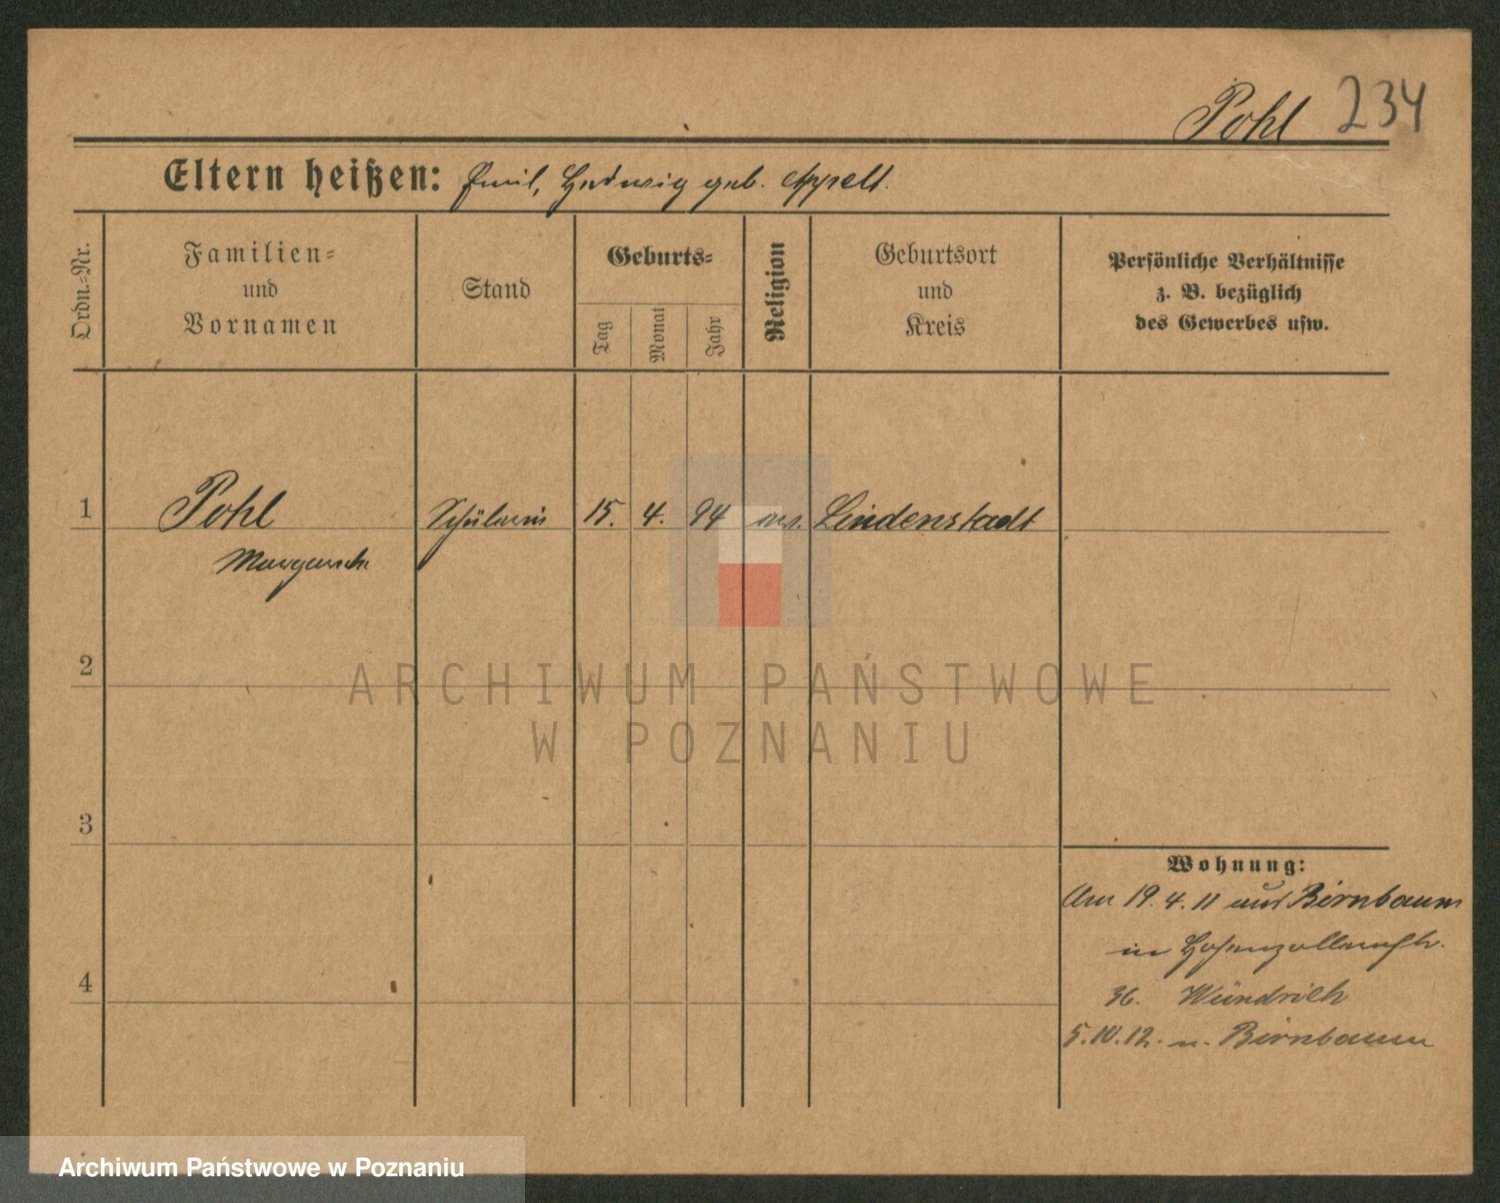 Pohl 234
Eltern heißen: Emil, Hedwig geb. Appelt.
Ordn.-Nr.
Familien-
und
Vornamen
Stand
Geburts-
Tag
Monat
Jahr
Religion
Geburtsort
und
Kreis
Persönliche Verhältnisse
z. B. bezüglich
des Gewerbes usw.
1 Pohl Schülerin 15. 4. 94 ev. Lindenstadt
Margarethe
2
3
4
Wohnung:
Am 19. 4. 11 aus Birnbaum
in Hohenzollernstr.
36. Wündrich
5.10.12. n. Birnbaum
ARCHIWUM PAŃSTWOWE
W POZNANIU
Archiwum Państwowe w Poznaniu